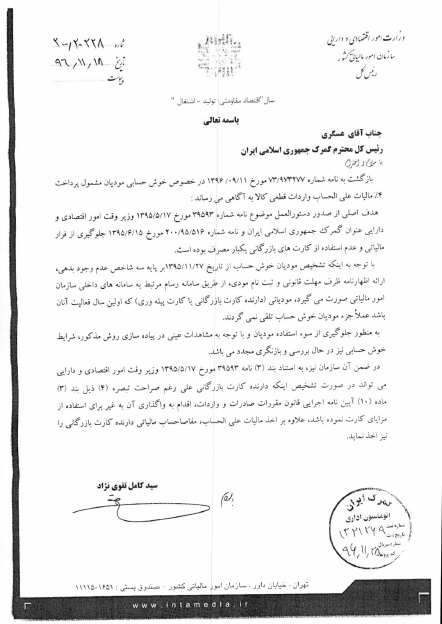 وزارت امور اقتصادی و دارایی
سازمان امور مالیاتی کشور
رئیس کل
شماره ۲۰۰/۲۰۲۲۸
تاریخ ۹۶,۱۱,۱۸
پیوست
سال "اقتصاد مقاومتی: تولید - اشتغال"
باسمه تعالی
جناب آقای عسگری
رئیس کل محترم گمرک جمهوری اسلامی ایران
با سلام و احترام
بازگشت به نامه شماره ۷۳/۹۷۳۲۷۷ مورخ ۱۳۹۶/۰۹/۱۱ در خصوص خوش حسابی مودیان مشمول پرداخت
۴٪ مالیات علی الحساب واردات قطعی کالا به آگاهی می رساند :
هدف اصلی از صدور دستورالعمل موضوع نامه شماره ۳۹۵۹۳ مورخ ۱۳۹۵/۵/۱۷ وزیر وقت امور اقتصادی و
دارایی عنوان گمرک جمهوری اسلامی ایران و نامه شماره ۲۰۰/۹۵/۵۱۶ مورخ ۱۳۹۵/۶/۱۵ جلوگیری از فرار
مالیاتی و عدم استفاده از کارت های بازرگانی یکبار مصرف بوده است.
با توجه به اینکه تشخیص مودیان خوش حساب از تاریخ ۱۳۹۵/۱۱/۲۷ بر پایه سه شاخص عدم بدهی،
ارائه اظهارنامه ظرف مهلت قانونی و ثبت نام مودی، از طریق سامانه رسام مرتبط به سامانه های داخلی سازمان
امور مالیاتی صورت می گیرد، مودیانی (دارنده کارت بازرگانی یا کارت پیله وری) که اولین سال فعالیت آنان
باشد عملاً جزء مودیان خوش حساب تلقی نمی گردند.
به منظور جلوگیری از سوء استفاده مودیان و با توجه به مشاهدات عینی در پیاده سازی روش مذکور، شرایط
خوش حسابی نیز در حال بررسی و بازنگری مجدد می باشد.
در ضمن آن سازمان نیز، به استناد بند (۳) نامه ۳۹۵۹۳ مورخ ۱۳۹۵/۵/۱۷ وزیر وقت امور اقتصادی و دارایی
می تواند در صورت تشخیص اینکه دارنده کارت بازرگانی علی رغم صراحت تبصره (۴) ذیل بند (۳)
ماده (۱۰) آیین نامه اجرایی قانون مقررات صادرات و واردات، اقدام به واگذاری آن به غیر برای استفاده از
مزایای کارت نموده باشد، علاوه بر اخذ مالیات علی الحساب، مفاصاحساب مالیاتی دارنده کارت بازرگانی را
نیز اخذ نماید.
سید کامل تقوی نژاد
گمرک ایران
اتوماسیون اداری
تهران، خیابان داور، سازمان امور مالیاتی کشور - صندوق پستی : ۱۶۵۱-۱۱۱۱۵
www.intamedia.ir